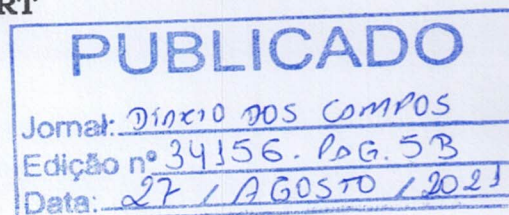 RT
PUBLICADO
Jornal: DIÁRIO DOS CAMPOS
Edição nº 34156. PÁG. 5B
Data: 27 / AGOSTO / 2021